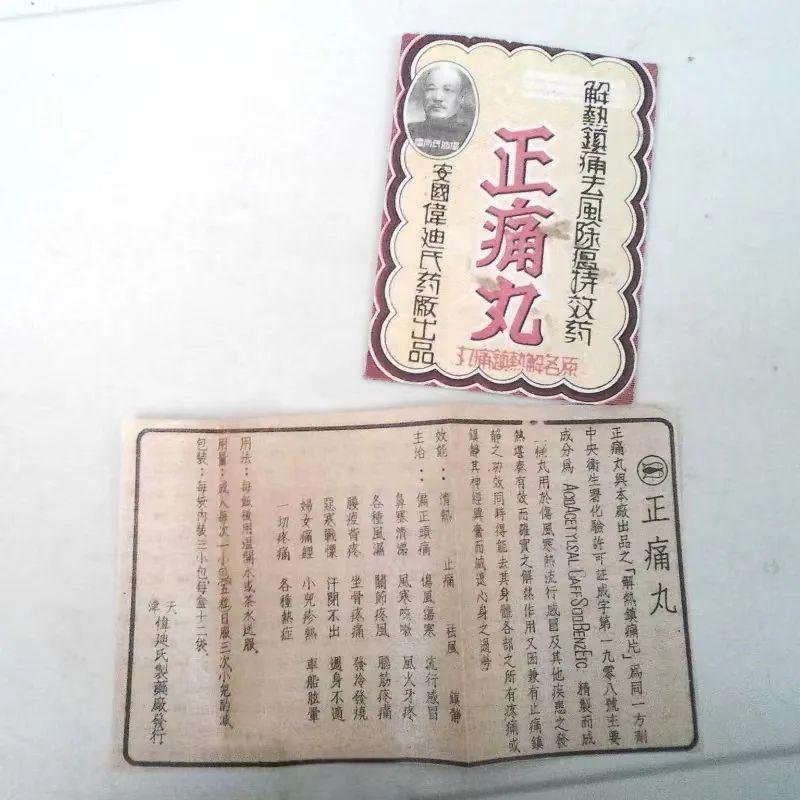 解熱鎮痛去風除瘟特效药
正痛丸
安國偉廸氏药廠出品
原名解熱鎮痛丸
正痛丸
正痛丸與本廠出品之「解熱鎮痛片」為同一方劑
中央衛生署化驗許可証成字第一九零八號主要
成分爲 ACID ACETYLSAL CAFF SOD BENZ ETC 精製而成
種丸用於傷風寒熱流行感冒及其他疾患之發
熱堪奏有效而確實之解熱作用又因兼有止痛鎮
靜之功效同時得能去其身體各部之所有疼痛或
鎮靜其神經興奮而減退心身之過勞
效能：清熱 止痛 祛風 鎮靜
主治：偏正頭痛 傷風傷寒 流行感冒
鼻塞清涕 風寒咳嗽 風火牙疼
各種風濕 關節疼風 腸筋疼痛
腰痠背疼 坐骨疼痛 發冷發燒
惡寒戰慄 汗閉不出 週身不適
婦女痛經 小兒疹熱 車船眩暈
一切疼痛 各種熱症
用法：每飯後用溫開水或茶水送服
用量：成人每次一小包(五粒)日服三次小兒酌減
包裝：每袋內裝三小包每盒十二袋
天津偉廸氏製藥廠發行